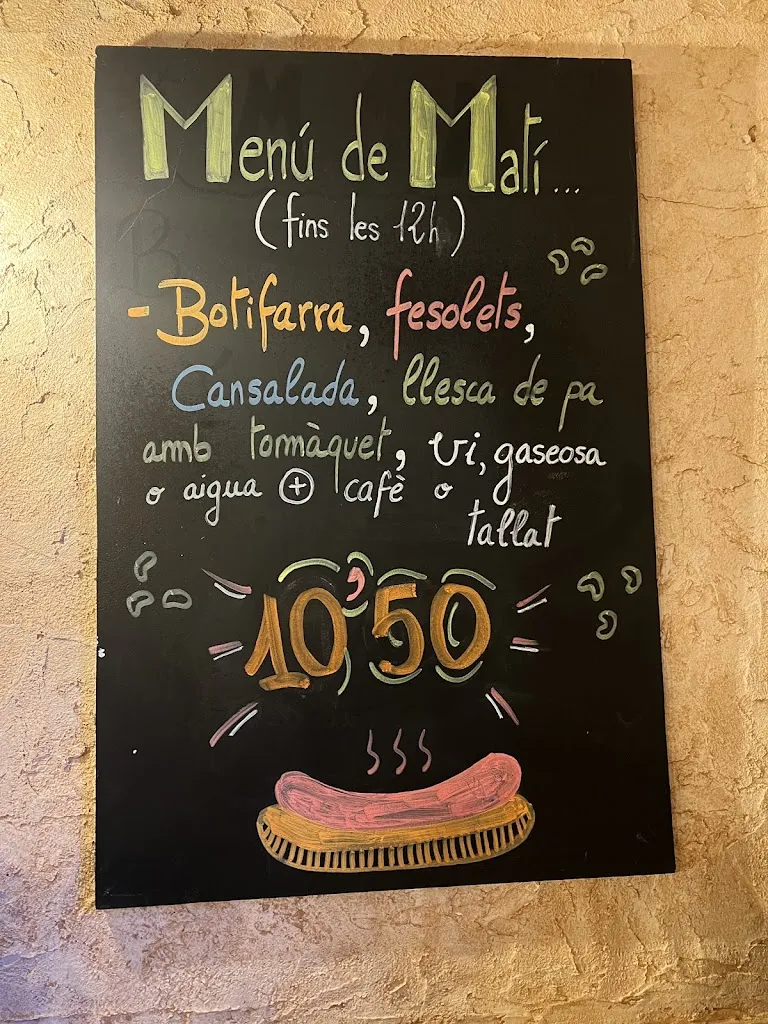 Menú de Matí...
(fins les 12h)
- Botifarra, fesolets,
Cansalada, llesca de pa
amb tomàquet, vi, gaseosa
o aigua + cafè o
tallat
10'50